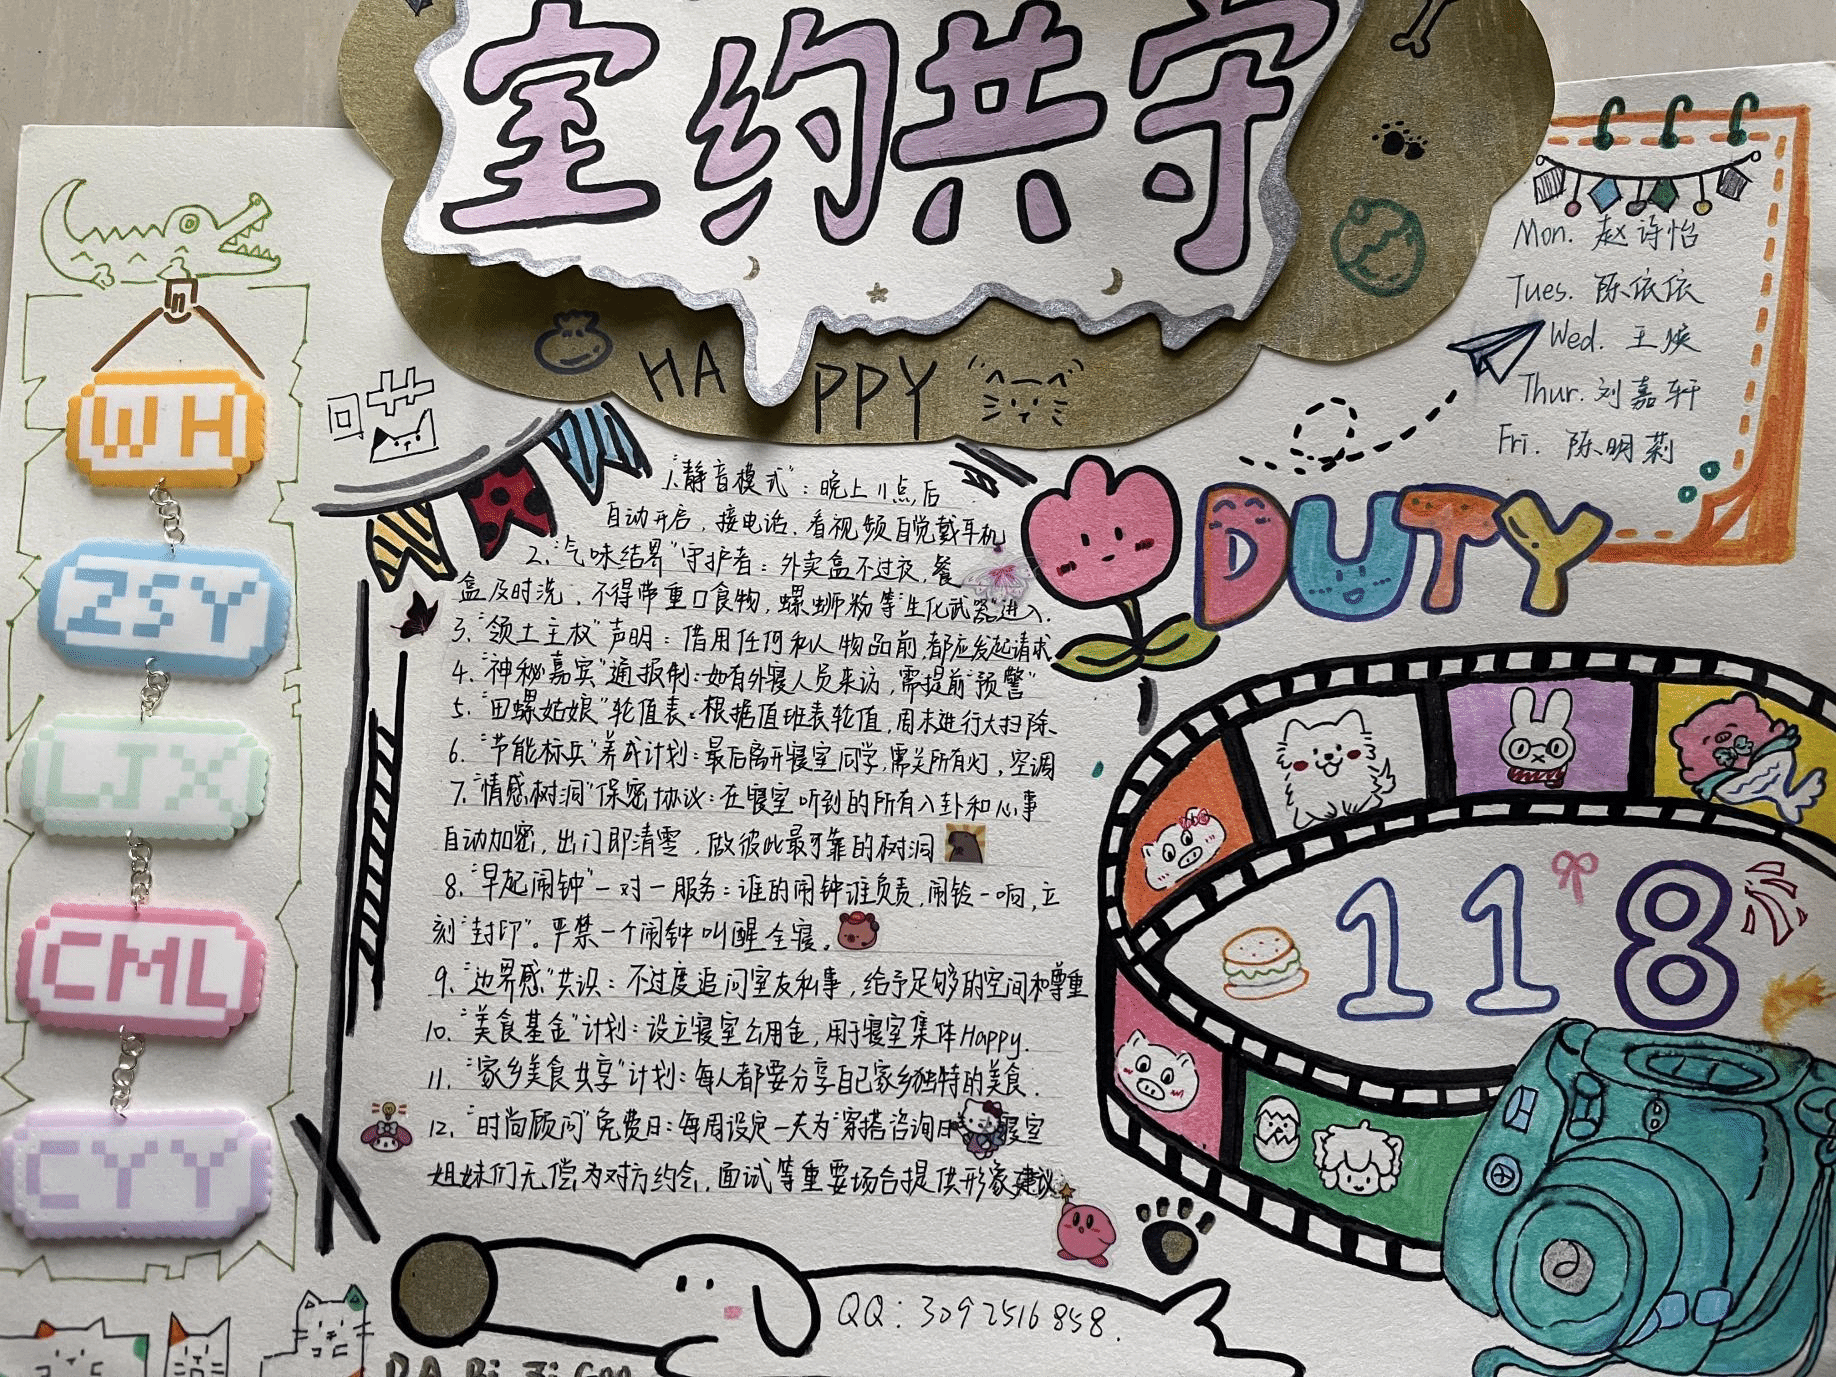 室约共守
HAPPY
WH
ZSY
LJX
CML
CYY
1."静音模式"：晚上11点后
自动开启，接电话、看视频自觉戴耳机
2."气味结界"守护者：外卖盒不过夜，餐
盒及时洗，不得带重口食物，螺蛳粉等"生化武器"进入.
3."领土主权"声明：借用任何私人物品前，都应发起请求
4."神秘嘉宾"通报制：如有外寝人员来访，需提前"预警"
5."田螺姑娘"轮值表：根据值班表轮值，周末进行大扫除.
6."节能标兵"养成计划：最后离开寝室同学，需关所有灯，空调
7."情感树洞"保密协议：在寝室听到的所有八卦和心事
自动加密，出门即清零，做彼此最可靠的树洞
8."早起闹钟"一对一服务：谁的闹钟谁负责，闹铃一响，立
刻"封印"。严禁一个闹钟叫醒全寝。
9."边界感"共识：不过度追问室友私事，给予足够的空间和尊重
10."美食基金"计划：设立寝室公用金，用于寝室集体Happy.
11."家乡美食共享"计划：每人都要分享自己家乡独特的美食.
12."时尚顾问"免费日：每周设定一天为"穿搭咨询日 寝室
姐妹们无偿为对方约会，面试等重要场合提供形象建议.
QQ：3092516858.
Mon. 赵诗怡
Tues. 陈依依
Wed. 王
Thur. 刘嘉轩
Fri. 陈明莉
DUTY
118